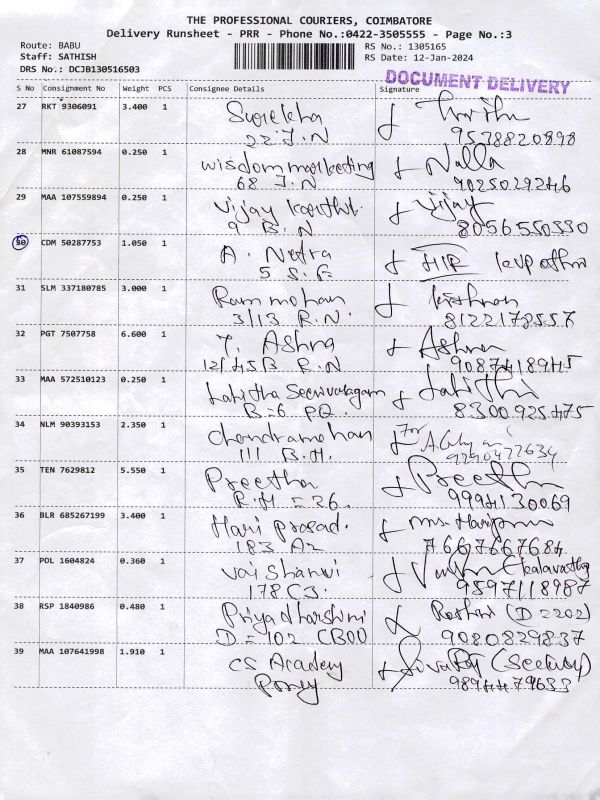 THE PROFESSIONAL COURIERS, COIMBATORE
Delivery Runsheet - PRR - Phone No.:0422-3505555 - Page No.:3
Route: BABU
Staff: SATHISH
DRS No.: DCJB130516503
RS No.: 1305165
RS Date: 12-Jan-2024
DOCUMENT DELIVERY
S No Consignment No Weight PCS Consignee Details Signature
27 RKT 9306091 3.400 1 Surekha
22 J.N 9578820898
28 MNR 61087594 0.250 1 wisdom marketing Nalla
68 J.N 9025029246
29 MAA 107559894 0.250 1 Vijay Keerthi. Vijay
9 B.N 8056550330
30 CDM 50287753 1.050 1 A. Netra
5 S.F
31 SLM 337180785 3.000 1 Ram mohan Krishnan
3/13 R.N. 8122178557
32 PGT 7507758 6.600 1 T. Ashra
12/45B R.N 9087418945
33 MAA 572510123 0.250 1 Lalitha
B=6 PQ. 8300925475
34 NLM 90393153 2.350 1 Chandramohan For
111 B.H.
35 TEN 7629812 5.550 1 Preetha
R.H = 26. 9994130069
36 BLR 685267199 3.400 1 Hari prasad.
183 A2 7667667684
37 POL 1604824 0.360 1 Vaishanvi
178 C3. 9597118987
38 RSP 1840986 0.480 1 Priya dharshini (D=202)
D=102 CBOD 9080829837
39 MAA 107641998 1.910 1 CS Academy
9894479633